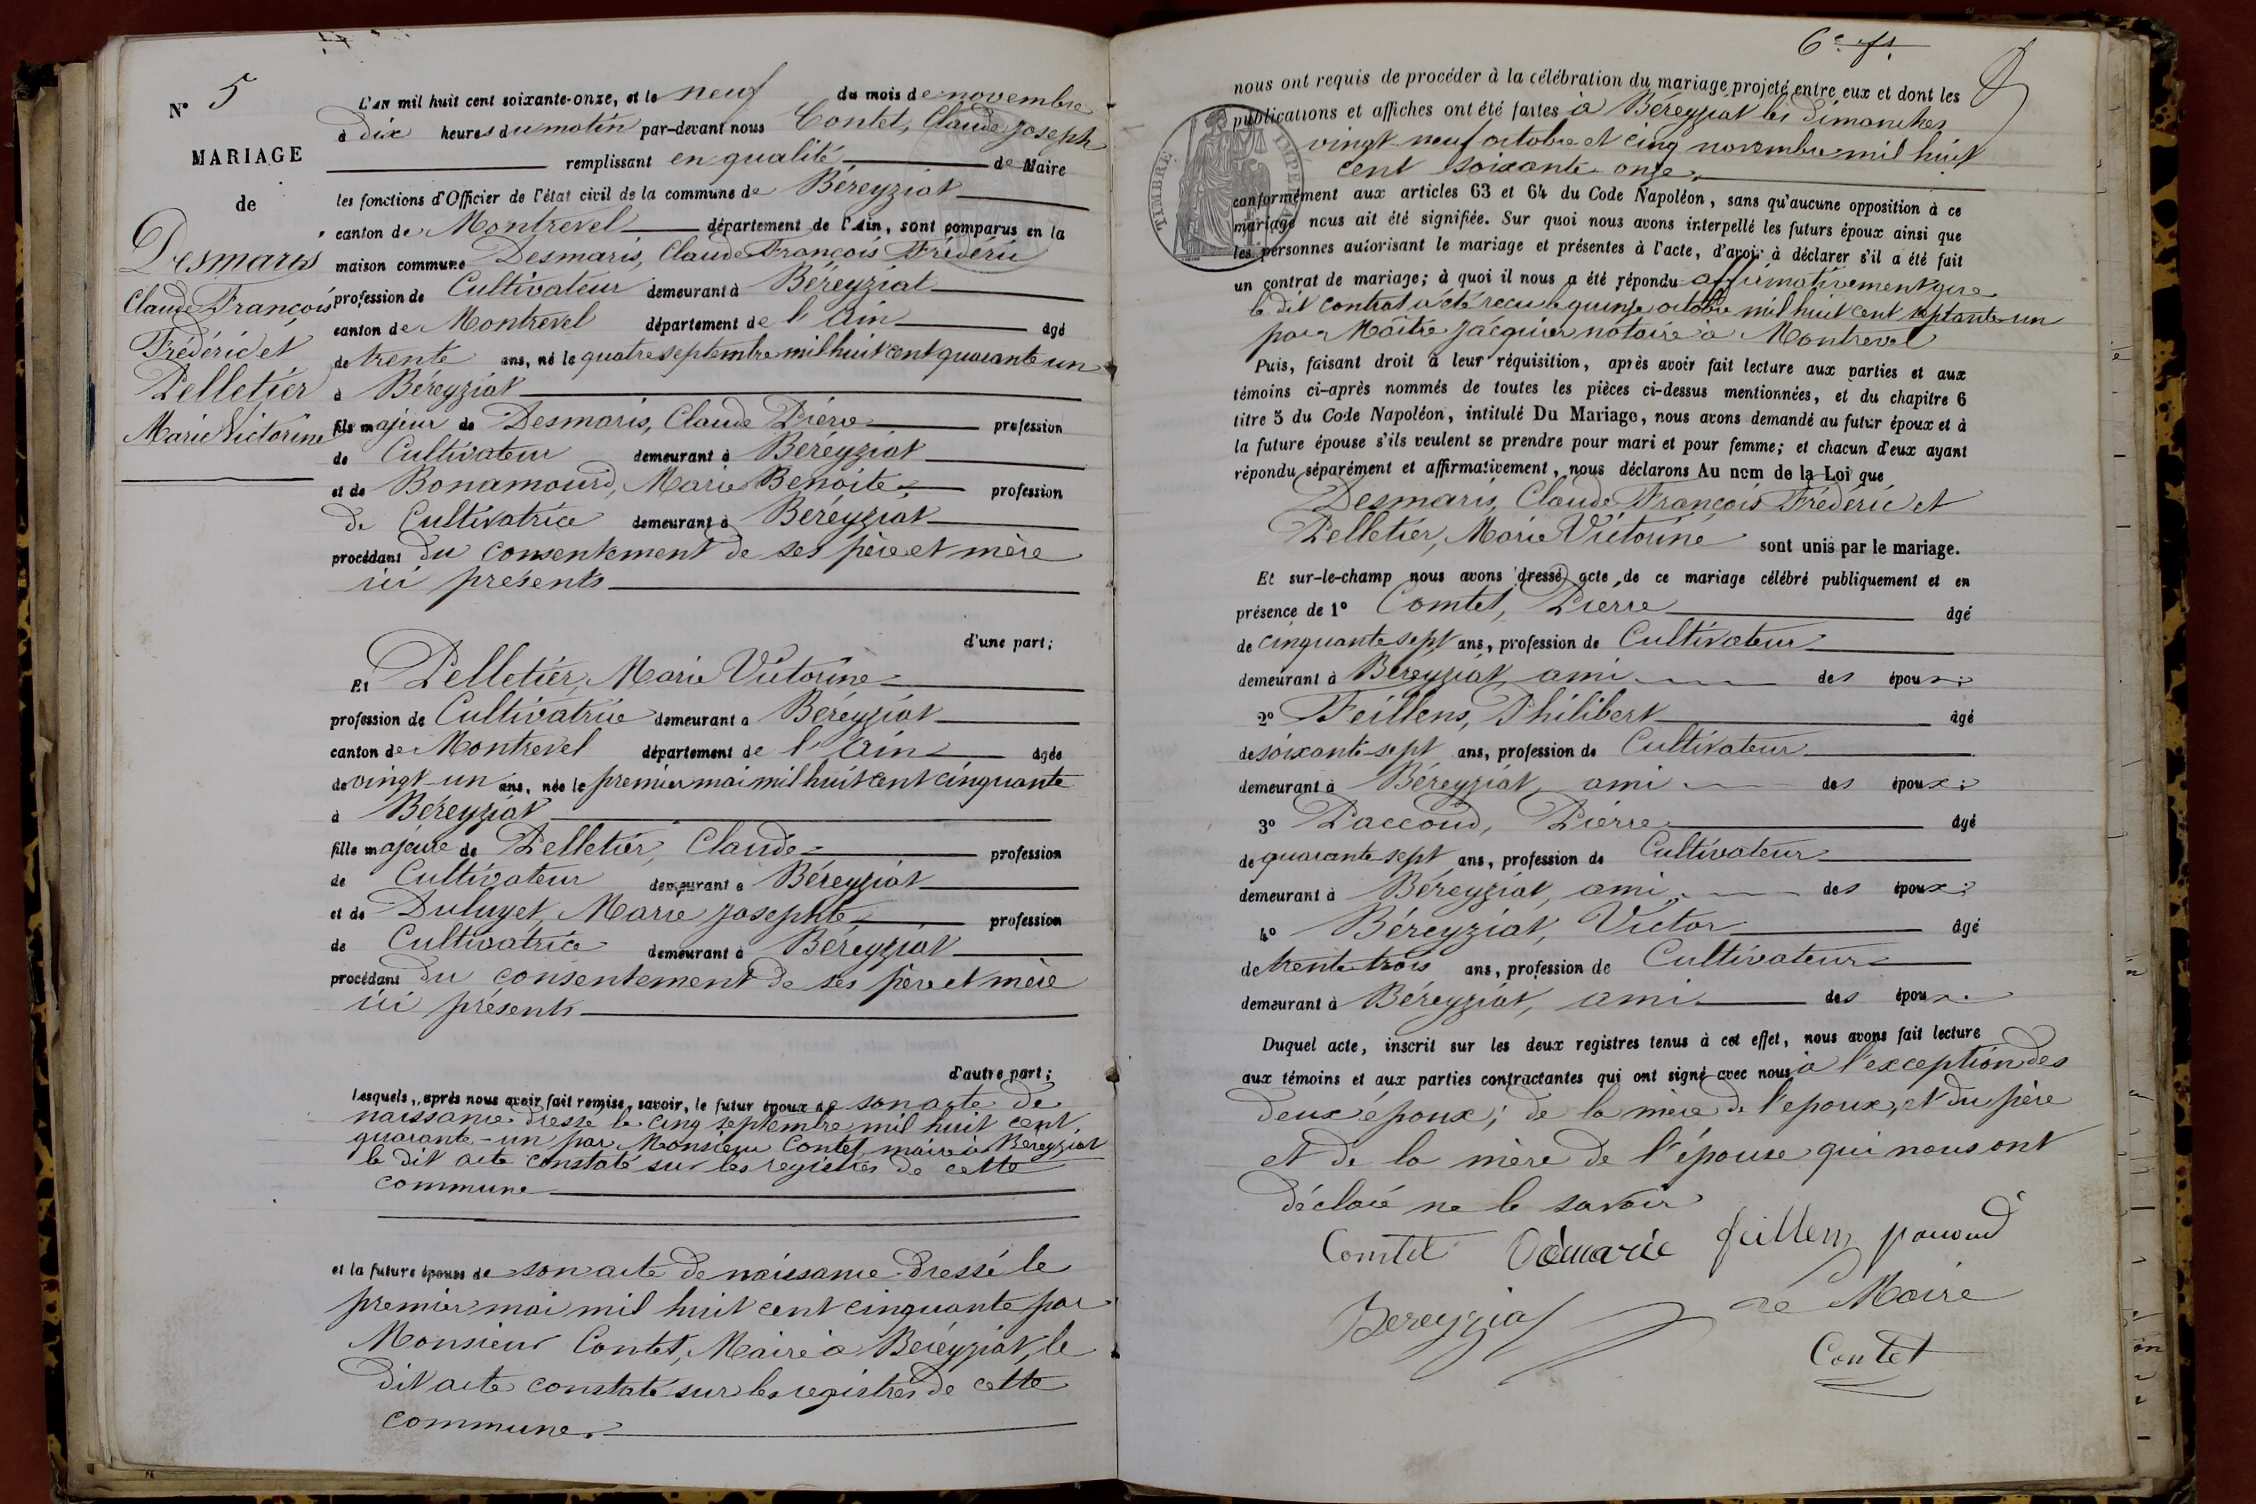 N° 5
MARIAGE
de
Desmaris
Claude François
Frédéric et
Pelletier
Marie Victorine
L'an mil huit cent soixante-onze, et le neuf du mois de novembre
à dix heures du matin par-devant nous Contet, Claude Joseph
remplissant en qualité de Maire
les fonctions d'Officier de l'état civil de la commune de Béreyziat
canton de Montrevel département de l'Ain, sont comparus en la
maison commune Desmaris, Claude François Frédéric
profession de Cultivateur demeurant à Béreyziat
canton de Montrevel département de l'Ain âgé
de trente ans, né le quatre septembre mil huit cent quarante un
à Béreyziat
fils majeur de Desmaris, Claude Pierre profession
de Cultivateur demeurant à Béreyziat
et de Bonamourd, Marie Benoite, profession
de Cultivatrice demeurant à Béreyziat
procédant du consentement de ses père et mère
ici présents
d'une part;
Et Pelletier, Marie Victorine
profession de Cultivatrice demeurant à Béreyziat
canton de Montrevel département de l'Ain âgée
de vingt-un ans, née le premier mai mil huit cent cinquante
à Béreyziat
fille majeure de Pelletier, Claude profession
de Cultivateur demeurant à Béreyziat
et de Duluyet, Marie Josephte, profession
de Cultivatrice demeurant à Béreyziat
procédant du consentement de ses père et mère
ici présents
d'autre part;
Lesquels, après nous avoir fait remise, savoir, le futur époux de son acte de
naissance dressé le cinq septembre mil huit cent
quarante-un par Monsieur Contet, maire à Béreyziat
le dit acte constaté sur les registres de cette
commune
et la future épouse de son acte de naissance dressé le
premier mai mil huit cent cinquante par
Monsieur Contet, Maire à Béreyziat, le
dit acte constaté sur les registres de cette
commune.
6e ft
nous ont requis de procéder à la célébration du mariage projeté entre eux et dont les
publications et affiches ont été faites à Béreyziat les dimanches
vingt-neuf octobre et cinq novembre mil huit
cent soixante-onze,
TIMBRE IMPERIAL
conformément aux articles 63 et 64 du Code Napoléon, sans qu'aucune opposition à ce
mariage nous ait été signifiée. Sur quoi nous avons interpellé les futurs époux ainsi que
les personnes autorisant le mariage et présentes à l'acte, d'avoir à déclarer s'il a été fait
un contrat de mariage; à quoi il nous a été répondu affirmativement que
le dit contrat a été reçu le quinze octobre mil huit cent septante-un
par Maître Jacquier notaire à Montrevel
Puis, faisant droit à leur réquisition, après avoir fait lecture aux parties et aux
témoins ci-après nommés de toutes les pièces ci-dessus mentionnées, et du chapitre 6
titre 5 du Code Napoléon, intitulé Du Mariage, nous avons demandé au futur époux et à
la future épouse s'ils veulent se prendre pour mari et pour femme; et chacun d'eux ayant
répondu séparément et affirmativement, nous déclarons Au nom de la Loi que
Desmaris, Claude François Frédéric et
Pelletier, Marie Victorine sont unis par le mariage.
Et sur-le-champ nous avons dressé acte de ce mariage célébré publiquement et en
présence de 1° Comtet, Pierre âgé
de cinquante sept ans, profession de Cultivateur
demeurant à Béreyziat, ami des époux;
2° Feillens, Philibert âgé
de soixante-sept ans, profession de Cultivateur
demeurant à Béreyziat, ami des époux;
3° Paccoud, Pierre âgé
de quarante-sept ans, profession de Cultivateur
demeurant à Béreyziat, ami des époux;
4° Béreyziat, Victor âgé
de trente-trois ans, profession de Cultivateur
demeurant à Béreyziat, ami des époux.
Duquel acte, inscrit sur les deux registres tenus à cet effet, nous avons fait lecture
aux témoins et aux parties contractantes qui ont signé avec nous à l'exception des
deux époux; de la mère de l'époux, et du père
et de la mère de l'épouse qui nous ont
déclaré ne le savoir
Comtet Démarie feillens pacoud
Bereyziat Le Maire
Contet